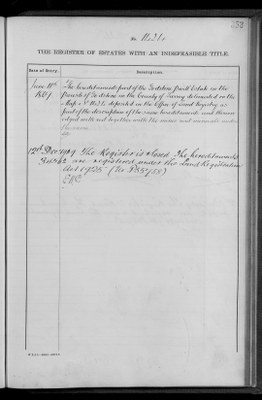 358
No. 1121
THE REGISTER OF ESTATES WITH AN INDEFEASIBLE TITLE.
Date of Entry.
Description.
June 11th
1867
The hereditaments part of the Godstone Court Estate in the
Parish of Godstone in the County of Surrey delineated on the
Map No 1121 deposited in the Office of Land Registry as
part of the description of the same hereditaments and thereon
edged with red together with the mines and minerals under
the same.
The Register is closed The hereditaments
are registered under the Land Registration
Act 1925